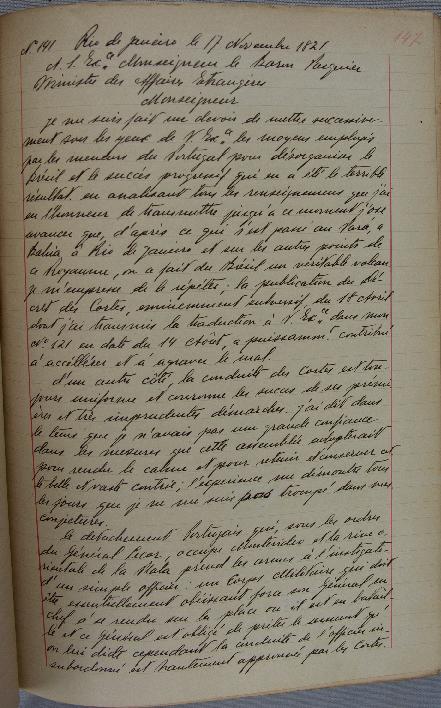 147
Nº 141 Rio de Janeiro le 17 Novembre 1821
A S. Exª Monseigneur le Baron Pasquier
Ministre des Affaires Etrangères
Monseigneur
Je me suis fait un devoir de mettre successive-
ment sous les yeux de V. Exª les moyens employés
par les meneurs du Portugal pour désorganiser le
Brésil et le succès progressif qui en a été le terrible
résultat. en analisant tous les renseignemens que j'ai
eu l'honneur de transmettre jusqu'à ce moment j'ose
avancer que, d'après ce qui s'est passé au Para, a
Bahia, à Rio de Janeiro et sur les autres points de
ce Royaume, on a fait du Brésil un véritable volcan
je m'empresse de le répéter; la publication du dé-
cret des Cortes, eminemment subversif du 18 Avril
dont j'ai transmis la traduction à V. Exª dans mon
Nº 121 en date du 14 Aout, a puissamment contribué
à accélérer et à agraver le mal.
D'un autre côté, la conduite des Cortes est tou-
jours uniforme et couronne les succès de ses premi-
ères et très imprudentes démarches. j'ai dit dans
le tems que je n'avais pas une grande confiance
dans les mesures que cette assemblée adopterait
pour rendre le calme et pour retenir et conserver cet-
te belle et vaste contrée; l'expérience me démontre tous
les jours que je ne me suis pas trompé dans mes
conjectures.
Le détachement Portugais qui, sous les ordres
du Général Lecor, occupe Montevideo et la rive o-
rientale de la Plata prend les armes à l'instigati-
d'un simple officier: un Corps Militaire qui doit
être essentiellement obéissant force son général en
chef à se rendre sur la place où il est en batail-
le et ce Général est obligé de prêter le serment qu'
on lui dicte cependant la conduite de l'officier in-
subordonné est hautement approuvée par les Cortes.